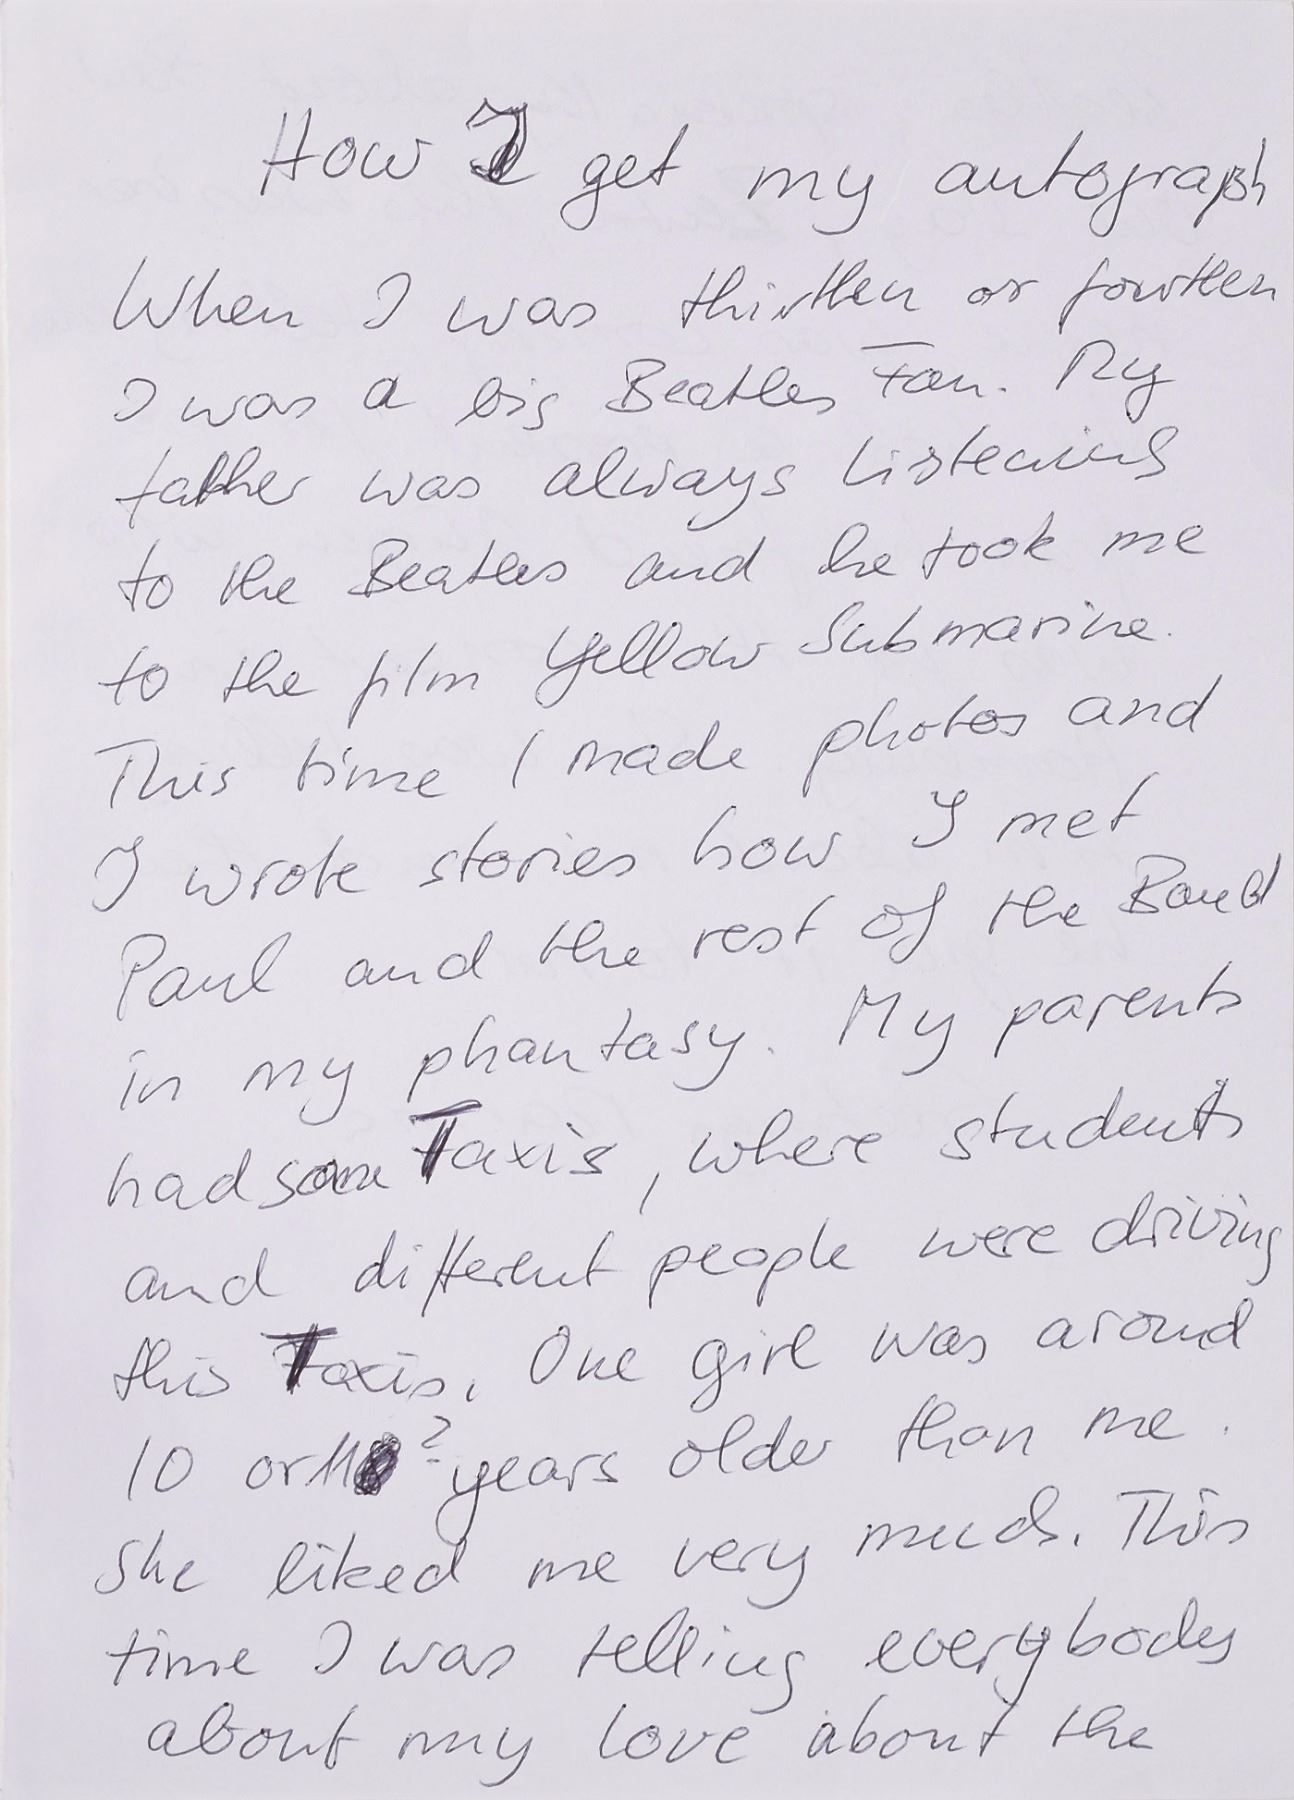 How I get my autograph
When I was thirtten or fourtten
I was a big Beatles Fan. My
father was always Listening
to the Beatles and he took me
to the film Yellow Submarine.
This time I made photos and
I wrote stories how I met
Paul and the rest of the Band
in my phantasy. My parents
had some Taxis, where students
and different people were driving
this Taxis. One girl was around
10 or 11 ? years older than me.
She liked me very much. This
time I was telling everybody
about my love about the